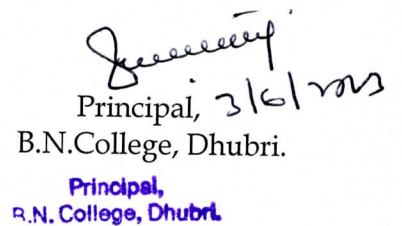 Principal, 3/6/2023
B.N.College, Dhubri.
Principal,
B.N. College, Dhubri.